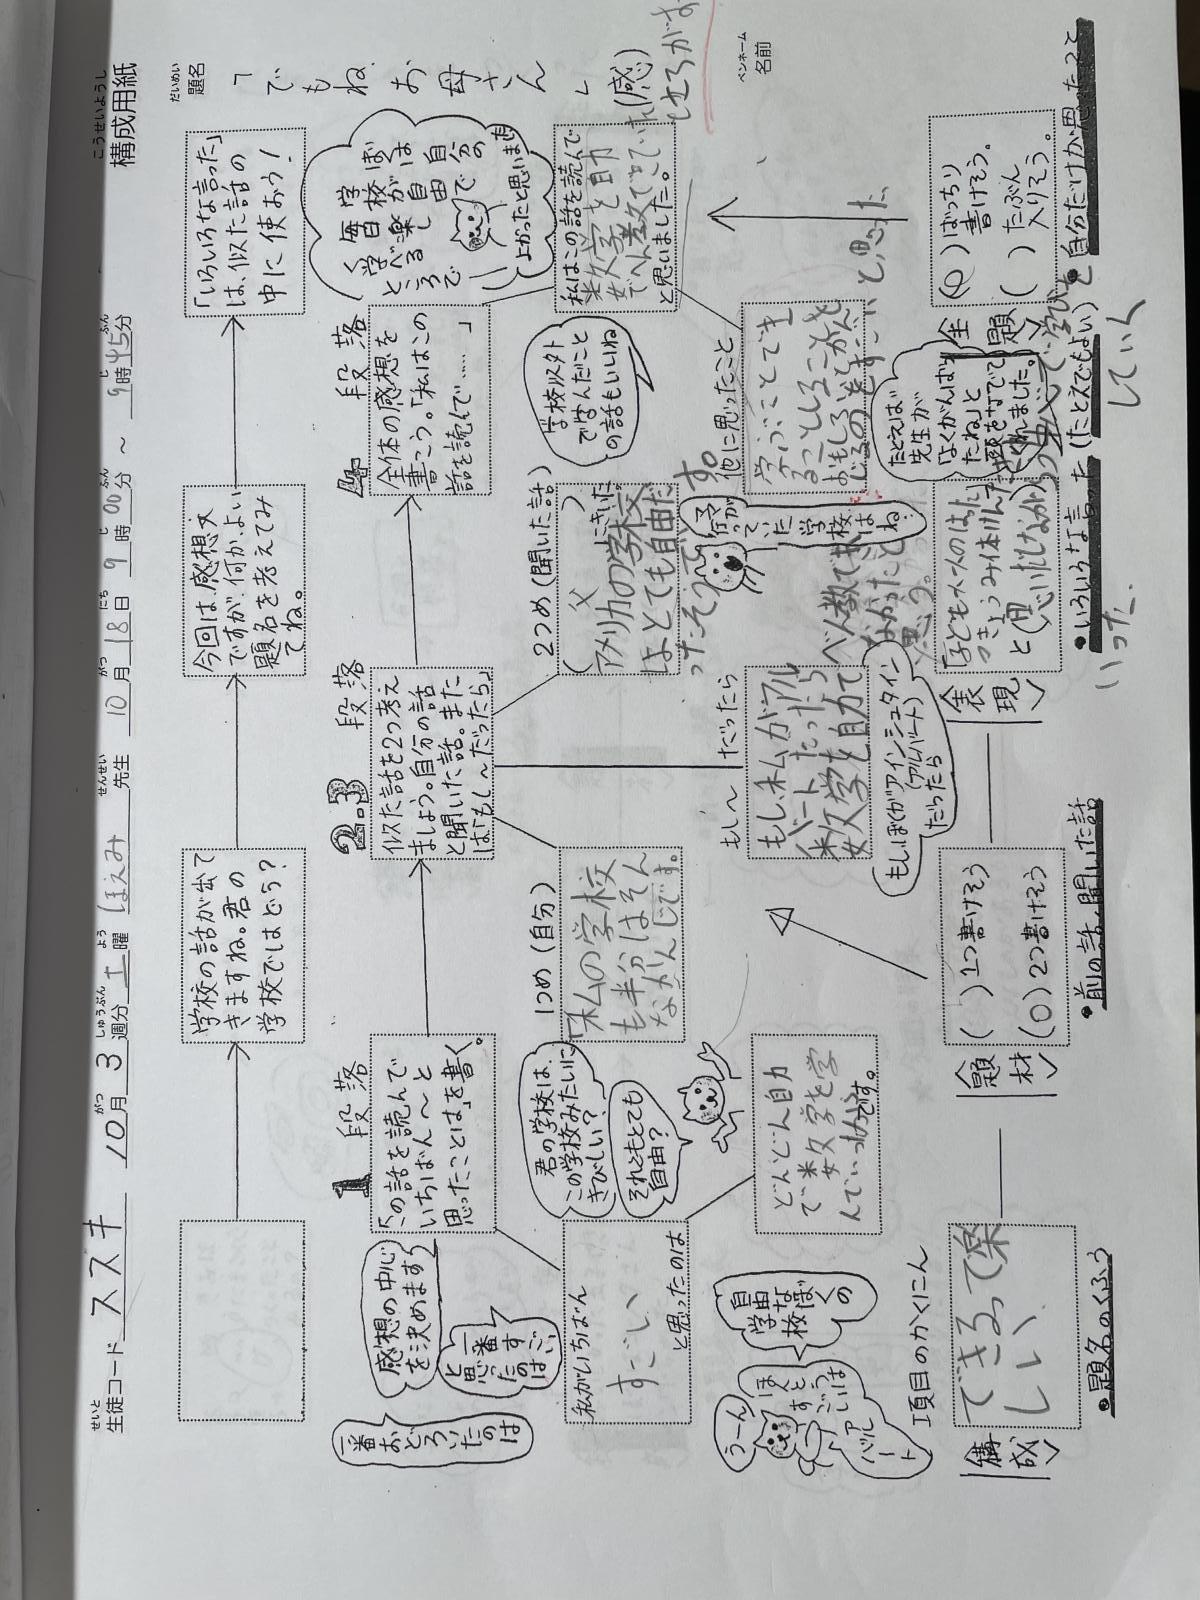 こうせいようし
構成用紙
せいと
生徒コード ススキ 10月 3週分 土曜 ほえみ 先生 10月18日 9時00分 ～ 9時45分
だいめい
題名
「でもね お母さん」
ペンネーム
名前
学校の話が出て
きますね。君の
学校ではどう？
今回は感想文
ですが、何か、よい
題名を考えてみ
てね。
「いろいろな言った」
は、似た話の
中に使おう！
1 段落
「この話を読んで
いちばん～と
思ったことは」を書く。
感想の中心
を決めます
一番すごい
と思ったのは
一番おどろいたのは
私がいちばん
すごい
と思ったのは
どんどん自力
で数学を学
んでいったです。
君の学校は、
この学校みたいに
きびしい？
それともとても
自由？
うーん
ほんとうは
すごい
アルバート
自由な
学校
ぼくの
2・3 段落
似た話を2つ考え
ましょう。自分の話
と聞いた話。また
は「もし～だったら」
1つめ（自分）
「私の学校
も半分はそん
なかんじです。
2つめ（聞いた話）
（父）にきいた
アメリカの学校
はとても自由だ
ったそうです。
もし～だったら
もし、私がアル
バートだったら
数学を自力で
もしぼくがアインシュタイン
（アルバート）
だったら
学校は
ね…
4 段落
全体の感想を
書こう。「私はこの
話を読んで……」
学校以外
で学んだこと
の話もいいね
学校が
ぼくは
毎日
自由で
楽しく
学べる
ところで
よかったと思いました
私はこの話を読んで
数学を自力
と思いました。
他に思ったこと
学ぶことでき
と思った
項目のかくにん
＜構成＞
できるって楽
しい
・題名のくふう
＜題材＞
（ ）1つ書けそう
（○）2つ書けそう
・前の話、聞いた話
＜表現＞
たとえば
先生が
「よくがんばっ
たね」と
頭をなでて
くれました。
・いろいろな言った（たとえでもよい）
いった。
＜主題＞
）ばっちり
書けそう。
（ ）たぶん
入りそう。
・自分だけが思ったこと
していく